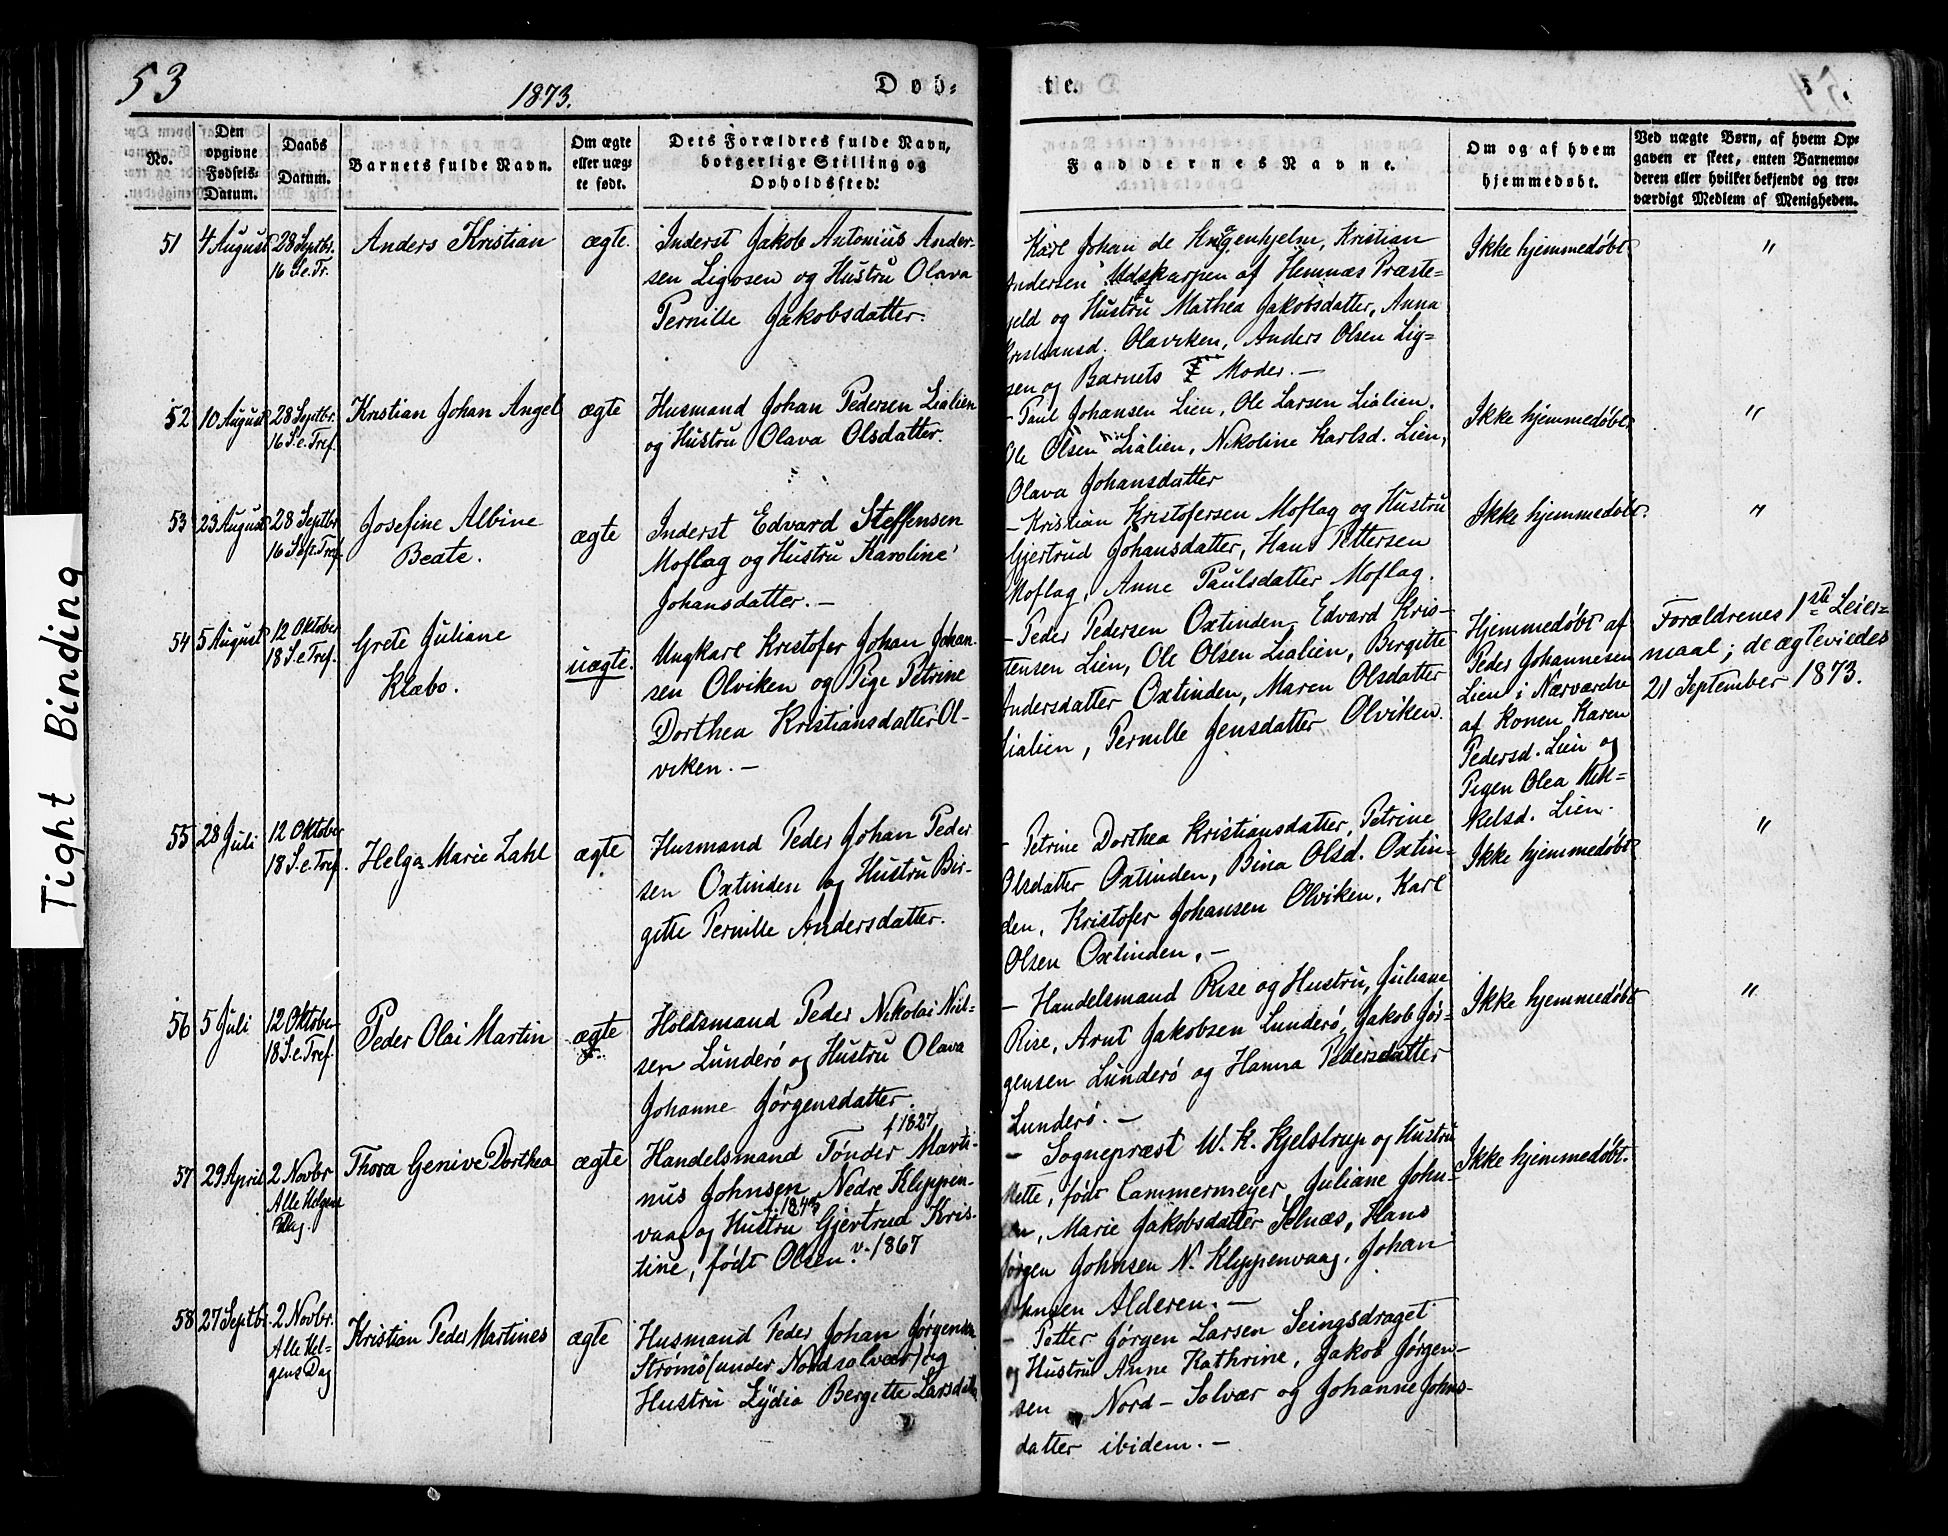 53
1873.
Døb=
te.
Tight Binding
No.
Den opgivne Fødsels-Datum.
Daabs Datum.
Barnets fulde Navn.
Om ægte eller uægte født.
Dets Forældres fulde Navn, borgerlige Stilling og Opholdssted:
Faddernes Navne.
Om og af hvem hjemmedøbt.
Ved uægte Børn, af hvem Opgaven er skeet, enten Barnemoderen eller hvilket bekjendt og troværdigt Medlem af Menigheden.
51
4 August
28 Septbr.
16 S.e.Tr.
Anders Kristian
ægte
Inderst Jakob Antonius Ander-
sen Ligosen og Hustru Olava
Pernille Jakobsdatter.
Karl Johan de Krogenhjelm, Kristian
Andersen Udskarpen af Hemnæs Præste=
gjeld og Hustru Mathea Jakobsdatter, Anna
Kristiansd. Olaviken, Anders Olsen Lig=
sen og Barnets Moder. —
Ikke hjemmedøbt
"
52
10 August
28 Septbr.
16 S.e.Tref.
Kristian Johan Angel
ægte
Husmand Johan Pedersen Lialien
og Hustru Olava Olsdatter.
- Paul Johansen Lien, Ole Larsen Lialien.
Ole Olsen Lialien, Nikoline Karlsd. Lien,
Olava Johansdatter
Ikke hjemmedøbt.
"
53
23 August
28 Septbr
16 S.e.Tref.
Josefine Albine
Beate.
ægte
Inderst Edvard Steffensen
Moflag og Hustru Karoline
Johansdatter. —
- Kristian Kristofersen Moflag og Hustru
Gjertrud Johansdatter, Hans Pettersen
Moflag, Anne Paulsdatter Moflag.
Ikke hjemmedøbt.
"
54
5 August
12 Oktober
18 S.e.Tref.
Grete Juliane
Klæbo.
uægte.
Ungkarl Kristofer Johan Johan
sen Olviken og Pige Petrine
Dorthea Kristiansdatter Ol-
viken. —
- Peder Pedersen Oxtinden, Edvard Kris-
tensen Lien, Ole Olsen Lialien, Birgitte
Andersdatter Oxtinden, Maren Olsdatter
Lialien, Pernille Jensdatter Olviken.
Hjemmedøbt af
Peder Johannesen
Lien i Nærværelse
af Konen Karen
Pedersd. Lien og
Pigen Olea Mik=
kelsd. Lien.
Forældrenes 1ste Leier=
maal; de ægteviedes
21 September 1873.
55
28 Juli
12 Oktober
18 S.e.Tref.
Helga Marie Zahl
ægte
Husmand Peder Johan Peder
sen Oxtinden og Hustru Bir-
gitte Pernille Andersdatter.
- Petrine Dorthea Kristiansdatter, Petrine
Olsdatter Oxtinden, Bina Olsd. Oxtin-
den, Kristofer Johansen Olviken, Karl
Olsen Oxtinden. —
Ikke hjemmedøbt
"
56
5 Juli
12 Oktober
18 S.e.Tref.
Peder Olai Martin
ægte
Holdsmand Peder Nikolai Niel-
sen Lunderø og Hustru Olava
Johanne Jørgensdatter.
- Handelsmand Rise og Hustru, Juliane
Rise, Arnt Jakobsen Lunderø, Jakob Jør-
gensen Lunderø og Hanna Pedersdatter
Lunderø. —
Ikke hjemmedøbt
"
57
29 April
2 Novbr
Alle Helgens
Dag.
Thora Genive Dorthea
ægte
f 1827
Handelsmand Tønder Marti-
nus Johnsen, Nedre Kleppen-
f. 1843
vaag og Hustru Gjertrud Kris-
tine, født Olsen. v. 1867
- Sognepræst W. K. Kjelstrup og Hustru
Mette, født Cammermeyer, Juliane John-
sen, Marie Jakobsdatter Selnæs, Hans
Jørgen Johnsen N. Kleppenvaag, Johan
Johnsen Alderen. —
Ikke hjemmedøbt.
58
27 Septbr.
2 Novbr.
Alle Hel-
gens Dag
Kristian Peder Martines
ægte
Husmand Peder Johan Jørgensen
Strømø (under Nordsolvær) og
Hustru Lydia Bergitte Larsdatter
- Petter Jørgen Larsen Seingsdraget
og Hustru Anne Kathrine, Jakob Jørgen-
sen Nord-Solvær og Johanne Johns-
datter ibidem. —